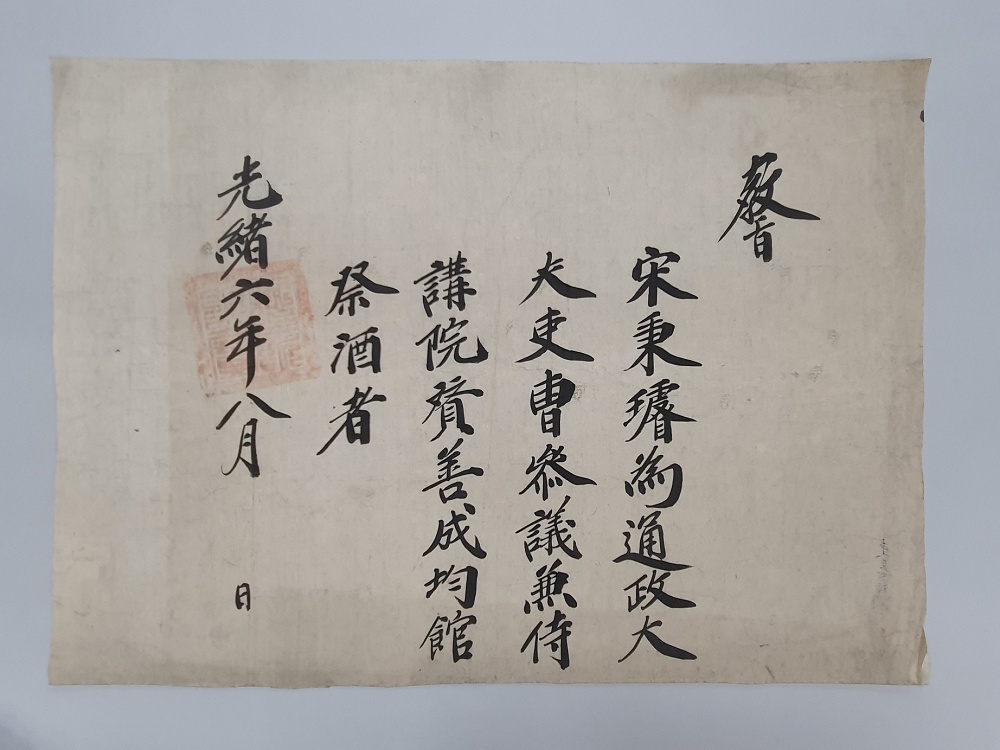 敎旨
宋秉璿為通政大
夫吏曹參議兼侍
講院賛善成均館
祭酒者
光緖六年八月　日